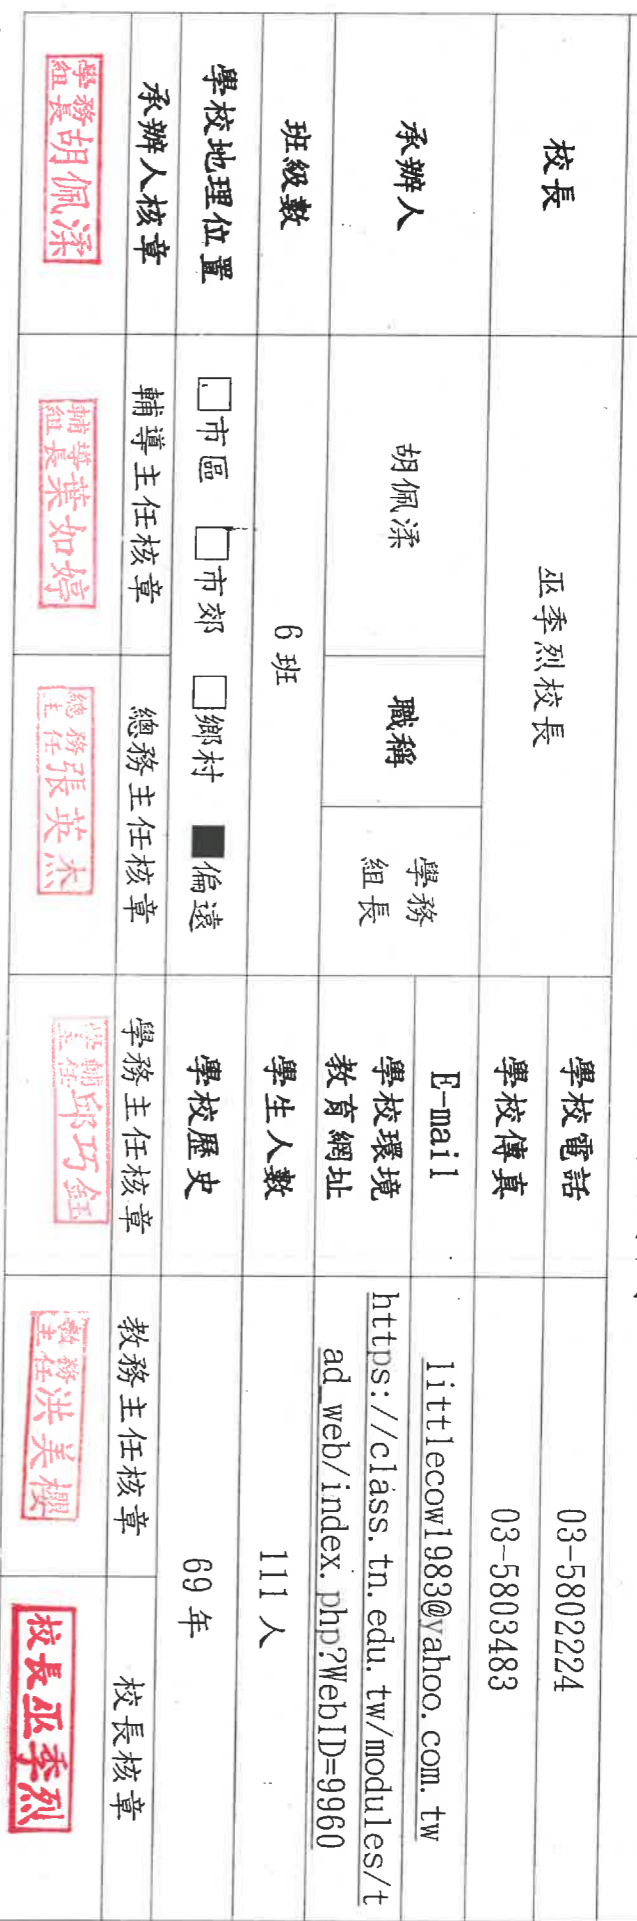 校長
巫季烈校長
學校電話
03-5802224
學校傳真
03-5803483
承辦人
胡佩渘
職稱
學務
組長
E-mail
littlecow1983@yahoo.com.tw
學校環境
教育網址
https://class.tn.edu.tw/modules/t
ad_web/index.php?WebID=9960
班級數
6 班
學生人數
111 人
學校地理位置
□市區 □市郊 □鄉村 ■偏遠
學校歷史
69 年
承辦人核章
輔導主任核章
總務主任核章
學務主任核章
教務主任核章
校長核章
學務組長胡佩渘
輔導組長葉如婷
總務主任張英杰
學輔主任邱巧鈺
教務主任洪美櫻
校長巫季烈